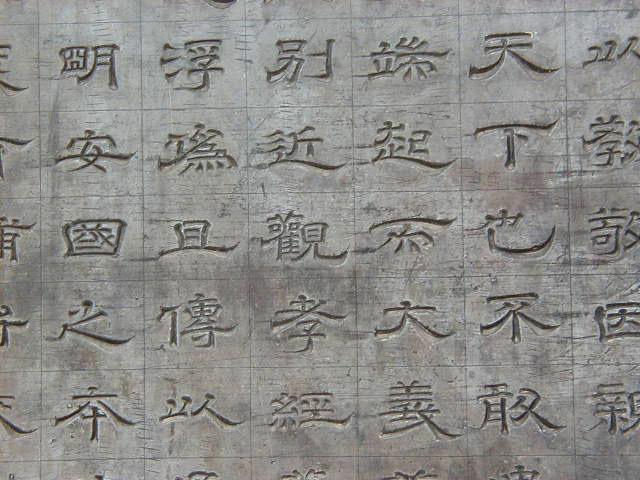 以教敬因親
天下也不敢
端起而大義
別近觀孝經
浮僞且傳以
明安國之本